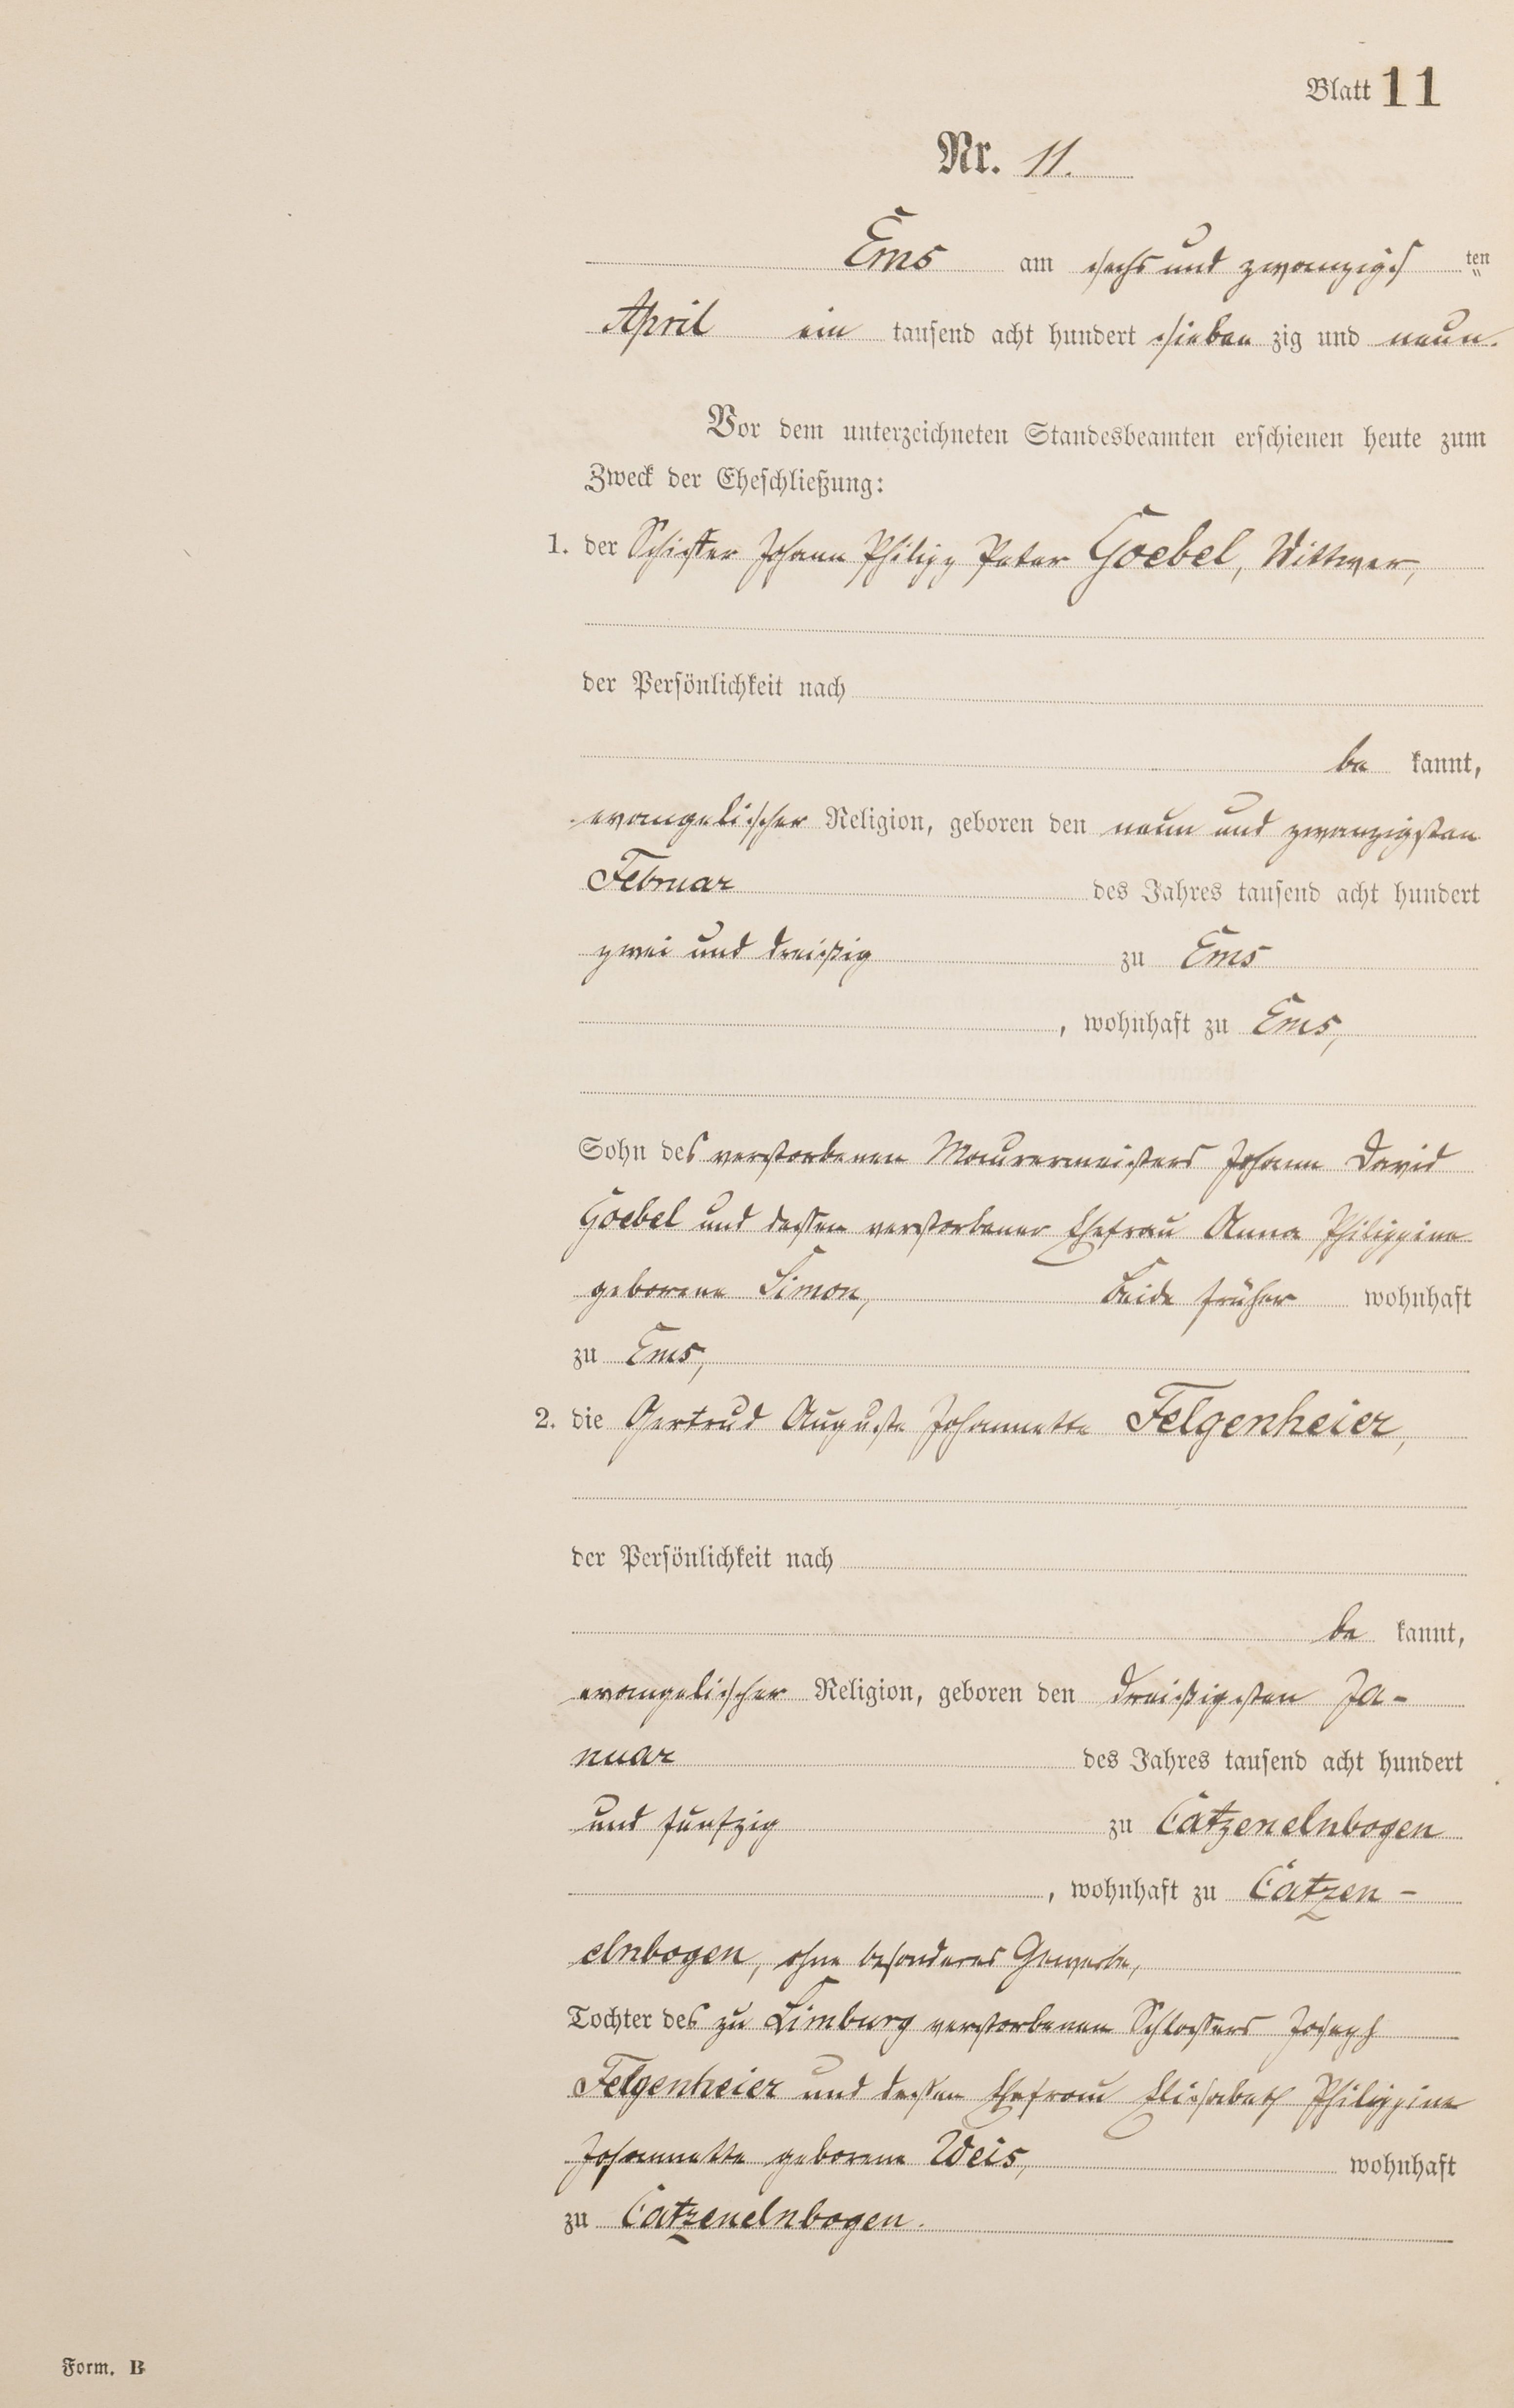 Blatt 11
Nr. 11.
Ems am sechs und zwanzigs ten
April ein tausend acht hundert sieben zig und neun.
Vor dem unterzeichneten Standesbeamten erschienen heute zum
Zweck der Eheschließung:
1. der Johann Philipp Peter Goebel, Wittwer,
der Persönlichkeit nach
be kannt,
evangelischer Religion, geboren den neun und zwanzigsten
Februar des Jahres tausend acht hundert
zwei und dreißig zu Ems
, wohnhaft zu Ems,
Sohn des verstorbenen Maurermeisters Johann David
Goebel und dessen verstorbener Ehefrau Anna Philippine
geborene Simon, Beide früher wohnhaft
zu Ems,
2. die Gertrud Auguste Johannette Felgenheier,
der Persönlichkeit nach
be kannt,
evangelischer Religion, geboren den dreißigsten Ja-
nuar des Jahres tausend acht hundert
und fünfzig zu Catzenelnbogen
, wohnhaft zu Catzen-
elnbogen, ohne besonderes Gewerbe,
Tochter des zu Limburg verstorbenen Schlossers Joseph
Felgenheier und dessen Ehefrau Elisabeth Philippine
Johannette geborene Weis, wohnhaft
zu Catzenelnbogen.
Form. B